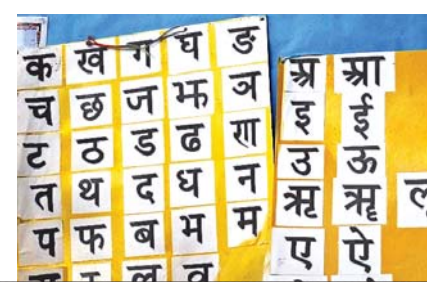 क ख ग घ ङ
च छ ज झ ञ
ट ठ ड ढ ण
त थ द ध न
प फ ब भ म
ल व
अ आ
इ ई
उ ऊ
ऋ ॠ
ए ऐ